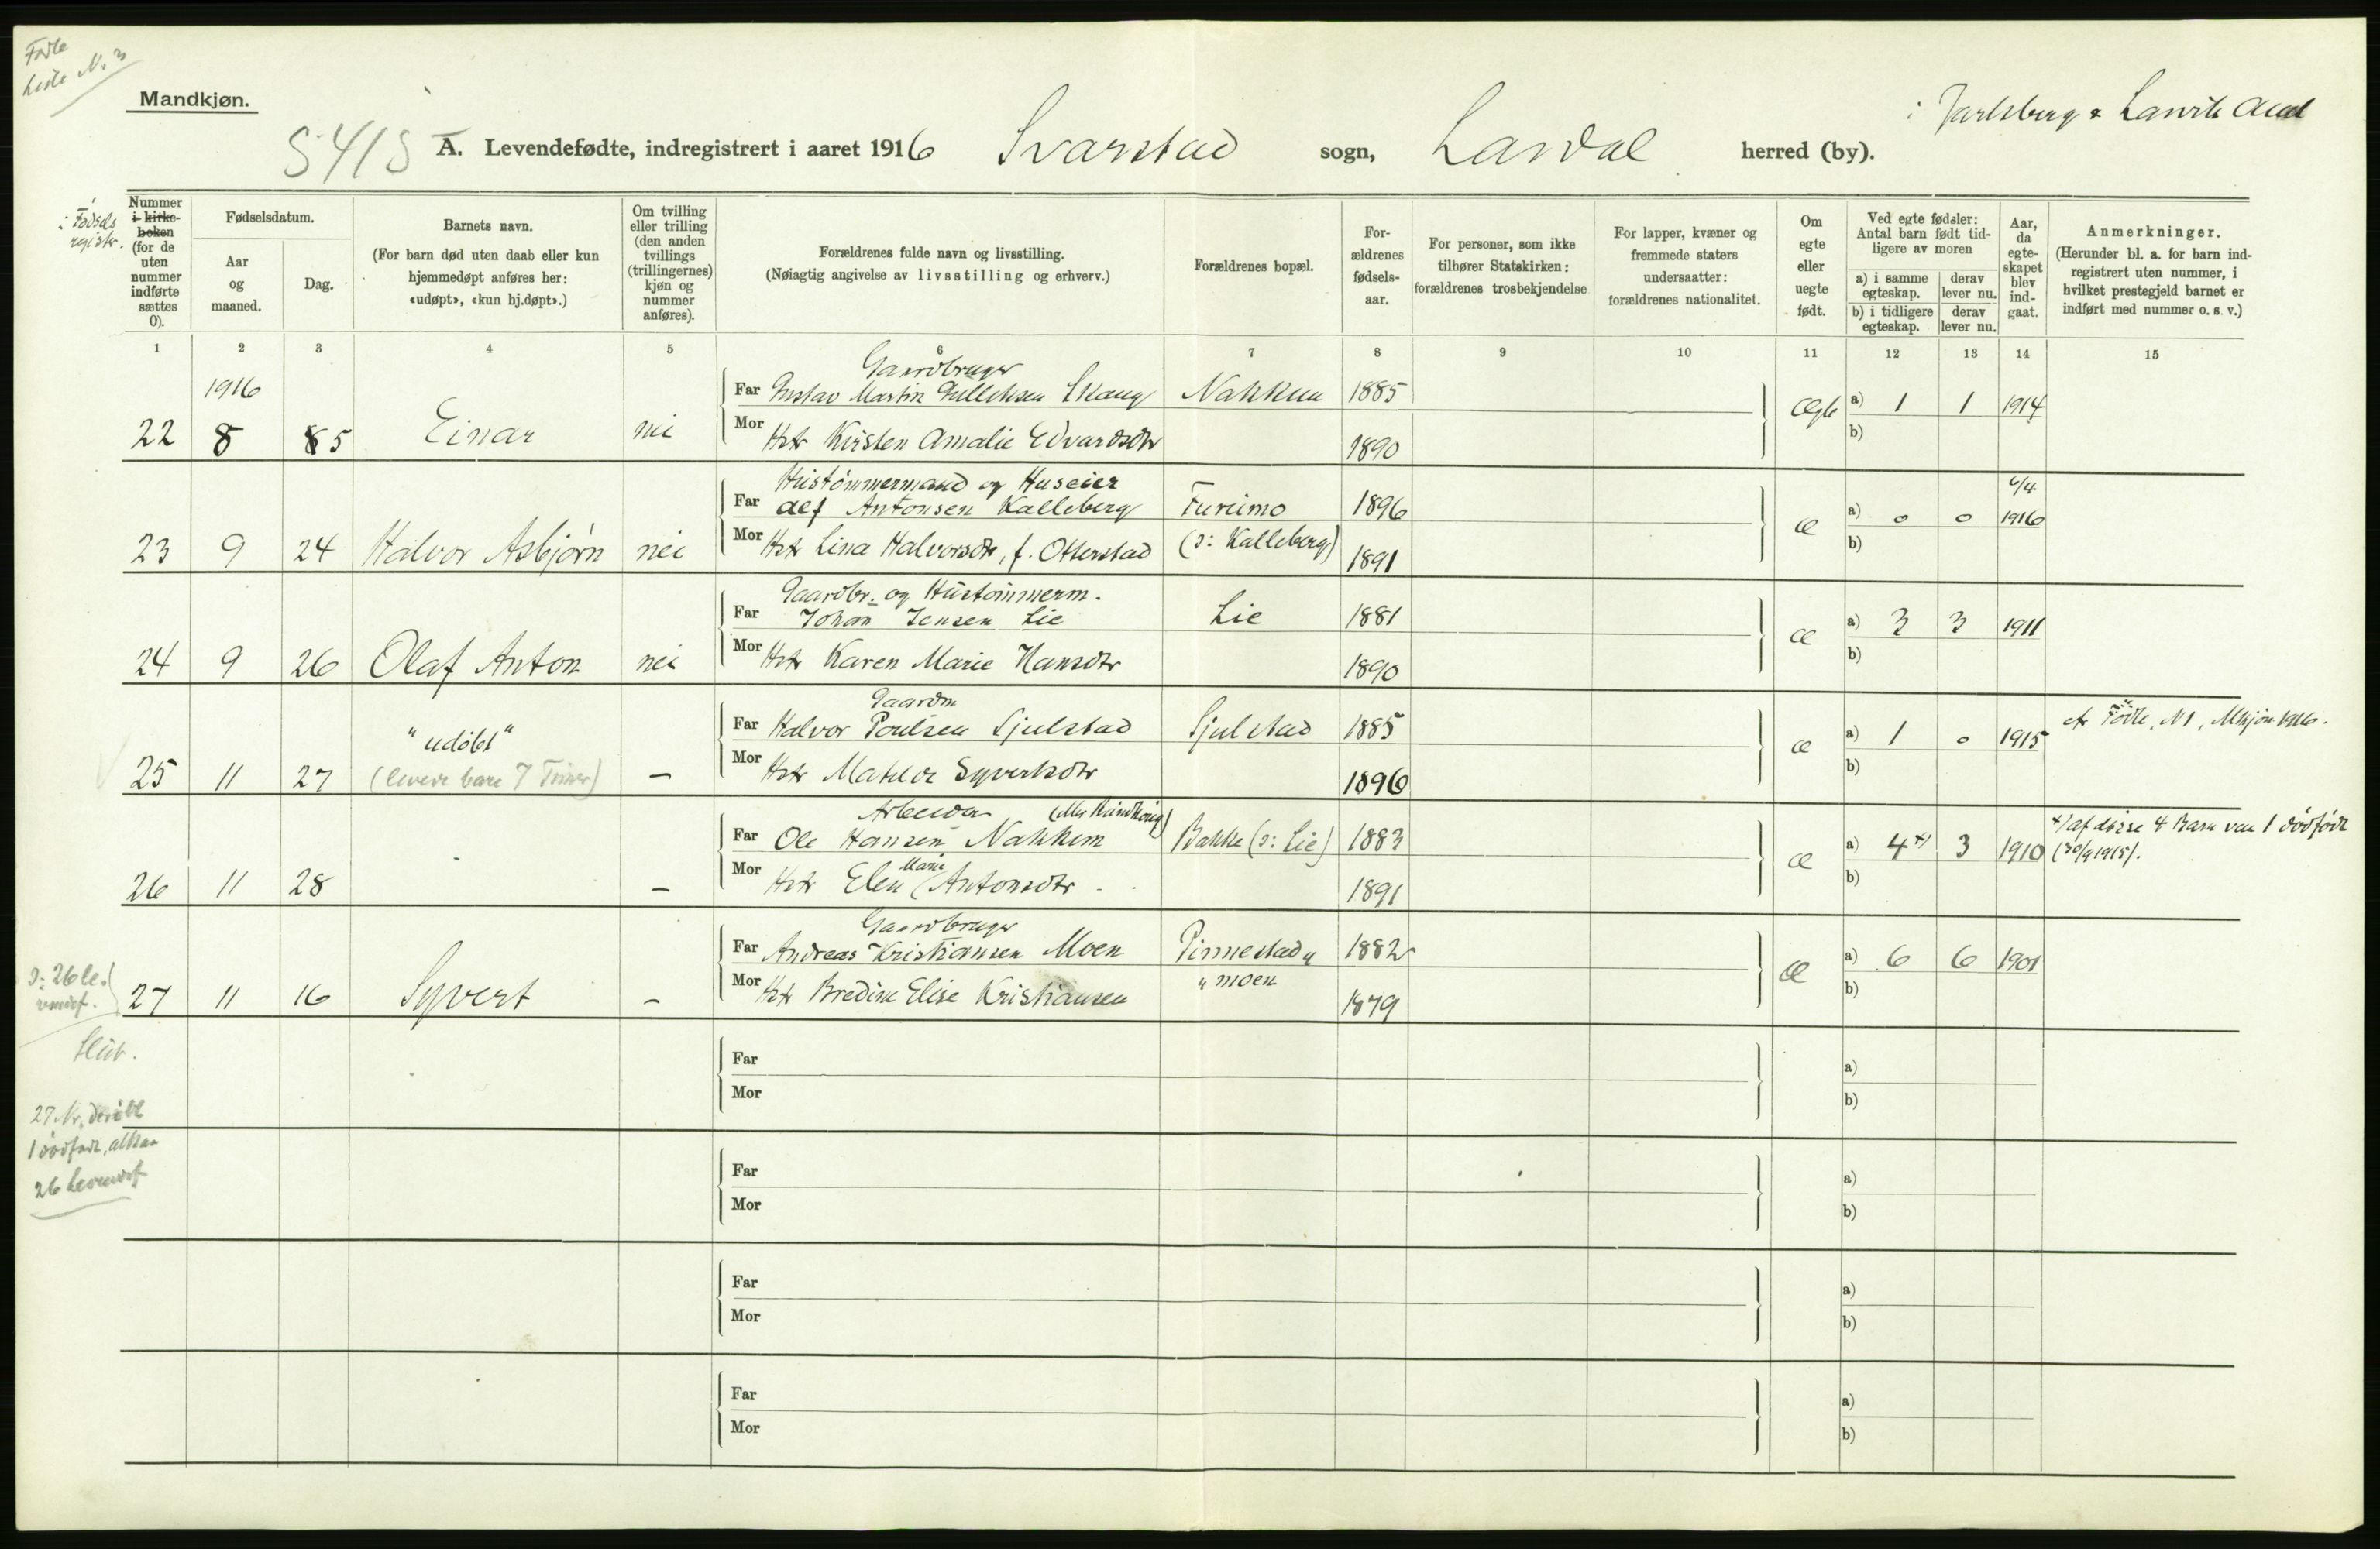 Fødte
Liste No 3
Mandkjøn.
i Jarlsberg & Larvik Amt
5415 A. Levendefødte, indregistrert i aaret 1916 Svarstad sogn, Lardal herred (by).
i Fødsels
registr.
Nummer
i kirke-
boken
(for de
uten
nummer
indførte
sættes
0).
Fødselsdatum.
Aar
og
maaned.
Dag.
Barnets navn.
(For barn død uten daab eller kun
hjemmedøpt anføres her:
«udøpt», «kun hj.døpt».)
Om tvilling
eller trilling
(den anden
tvillings
(trillingernes)
kjøn og
nummer
anføres).
Forældrenes fulde navn og livsstilling.
(Nøiagtig angivelse av livsstilling og erhverv.)
Forældrenes bopæl.
For-
ældrenes
fødsels-
aar.
For personer, som ikke
tilhører Statskirken:
forældrenes trosbekjendelse
For lapper, kvæner og
fremmede staters
undersaatter:
forældrenes nationalitet.
Om
egte
eller
uegte
født.
Ved egte fødsler:
Antal barn født tid-
ligere av moren
a) i samme egteskap. derav lever nu.
b) i tidligere egteskap. derav lever nu.
Aar,
da
egte-
skapet
blev
ind-
gaat.
Anmerkninger.
(Herunder bl. a. for barn ind-
registrert uten nummer, i
hvilket prestegjeld barnet er
indført med nummer o. s. v.)
1 2 3 4 5 6 7 8 9 10 11 12 13 14 15
Gaardbruger
1916 Far Gustav Martin Gulliksen Skaug Nakkem 1885 Ægte a) 1 1 1914
22 8 5 Einar nei Mor Hstr Kirsten Amalie Edvardsdtr 1890 b)
Hustømmermand og Huseier 6/4
Far Alf Antonsen Kalleberg Fureimo 1896 Æ a) 0 0 1916
23 9 24 Halvor Asbjørn nei Mor Hstr Lina Halvorsdtr, f. Otterstad (ɔ: Kalleberg) 1891 b)
Gaardbr. og Hustømmerm.
Far Johan Jensen Lie Lie 1881 Æ a) 3 3 1911
24 9 26 Olaf Anton nei Mor Hstr Karen Marie Hansdtr 1890 b)
Gaardm
"udøbt" Far Halvor Poulsen Sjulstad Sjulstad 1885 Æ a) 1 0 1915 Fødte, N 1, Mkjøn 1916.
25 11 27 (levede bare 7 Timer) – Mor Hstr Matilde Syvertsdtr 1896 b)
Arbeider
Far Ole Hansen Nakkem Bakke (ɔ: Lie) 1883 Æ a) 4 +) 3 1910 +) af disse 4 Barn var 1 dødfødt
(30/9 1915).
26 11 28 – Mor Hstr Elen Marie Antonsdtr 1891 b)
Gaardbruger
Far Andreas Kristiansen Moen Pinnestad 1882 Æ a) 6 6 1901
" moen
ɔ: 26 le-
vendef.
27 11 16 Syvert – Mor Hstr Bredine Elise Kristiansen 1879 b)
Slut.
Far a)
Mor b)
27 Nr, deraf
1 dødfødt, altsaa
26 Levendef
Far a)
Mor b)
Far a)
Mor b)
Far a)
Mor b)